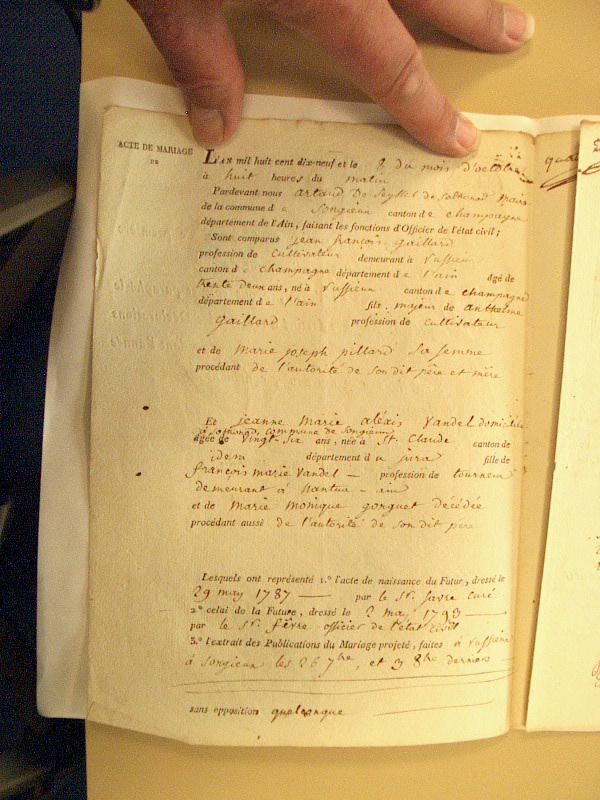 ACTE DE MARIAGE
DE
L'AN mil huit cent dix-neuf et le 8 du mois d'octobre
à huit heures du matin
Pardevant nous artaud De Seyssel de sothonod Maire
de la commune de Songieux canton de champagne
département de l'Ain, faisant les fonctions d'Officier de l'état civil;
Sont comparus jean françois gaillard
profession de cultivateur demeurant à Vussieux
canton de champagne département de l'ain âgé de
trente deux ans, né à Vussieux canton de champagne
département de l'ain fils majeur de anthelme
gaillard profession de cultivateur
et de Marie joseph pillard Sa femme
procédant de l'autorité de son dit père et mère
Et jeanne Marie aléxis Vandel domiciliée
à sothonod, commune de Songieux
âgée de Vingt-six ans, née à St. Claude canton de
idem département du jura fille de
françois marie Vandel profession de tourneur
demeurant à nantua - ain
et de Marie monique gonguet décédée
procédant aussi de l'autorité de son dit père
Lesquels ont représenté 1.° l'acte de naissance du Futur, dressé le
29 may 1787 par le Sr. favre curé
2.° celui de la Future, dressé le 2 may 1793
par le Sr. fèvre officier de l'état civil
3.° l'extrait des Publications du Mariage projeté, faites à Vussieux
à Songieux les 26 7bre, et 3 8bre derniers
sans opposition quelconque